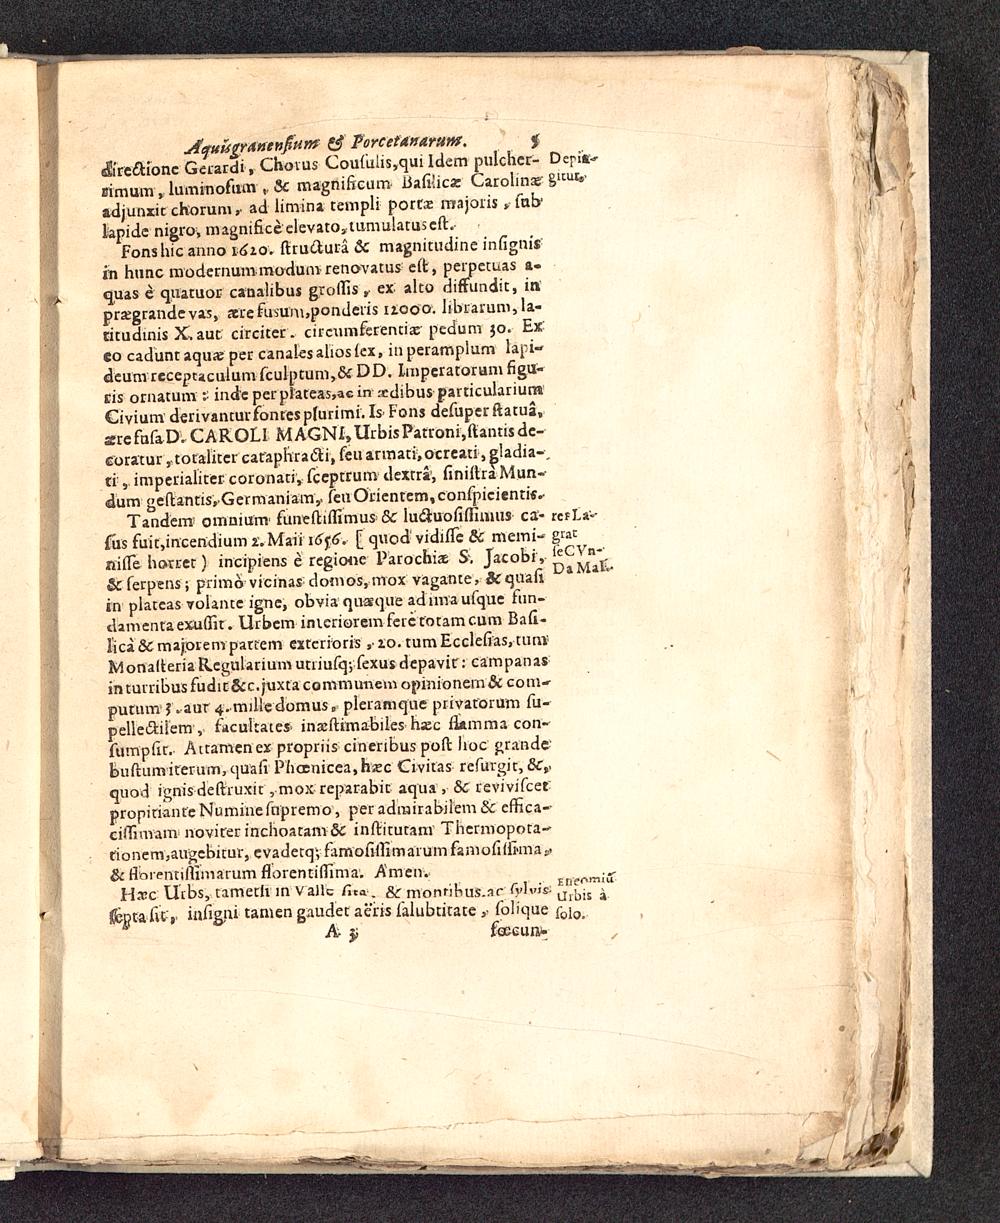 Aquisgranensium & Porcetanarum. 5
directione Gerardi, Chorus Cousulis, qui Idem pulcher-
rimum, luminosum, & magnificum Basilicæ Carolinæ
adjunxit chorum, ad limina templi portæ majoris, sub
lapide nigro, magnificè elevato, tumulatus est.
Depin-
gitur.
Fons hic anno 1620. structurâ & magnitudine insignis
in hunc modernum modum renovatus est, perpetuas a-
quas è quatuor canalibus grossis, ex alto diffundit, in
prægrande vas, ære fusum, ponderis 12000. librarum, la-
titudinis X. aut circiter. circumferentiæ pedum 30. Ex
eo cadunt aquæ per canales alios sex, in peramplum lapi-
deum receptaculum sculptum, & DD. Imperatorum figu-
ris ornatum: inde per plateas, ac in ædibus particularium
Civium derivantur fontes plurimi. Is Fons desuper statuâ,
ære fusa D. CAROLI MAGNI, Urbis Patroni, stantis de-
coratur, totaliter cataphracti, seu armati, ocreati, gladia-
ti, imperialiter coronati, sceptrum dextrâ, sinistrâ Mun-
dum gestantis, Germaniam, seu Orientem, conspicientis.
Tandem omnium funestissimus & luctuosissimus ca-
sus fuit, incendium 2. Maii 1656. [ quod vidisse & memi-
nisse horret ) incipiens è regione Parochiæ S. Jacobi,
& serpens; primò vicinas domos, mox vagante, & quasi
in plateas volante igne, obvia quæque ad ima usque fun-
damenta exussit. Urbem interiorem ferè totam cum Basi-
licâ & majorem partem exterioris, 20. tum Ecclesias, tum
Monasteria Regularium utriusq; sexus depavit: campanas
in turribus fudit &c. juxta communem opinionem & com-
putum 3. aut 4. mille domus, pleramque privatorum su-
pellectilem, facultates inæstimabiles hæc flamma con-
sumpsit. Attamen ex propriis cineribus post hoc grande
bustum iterum, quasi Phœnicea, hæc Civitas resurgit, &,
quod ignis destruxit, mox reparabit aqua, & reviviscet
propitiante Numine supremo, per admirabilem & effica-
cissimam noviter inchoatam & institutam Thermopota-
tionem, augebitur, evadetq; famosissimarum famosissima,
& florentissimarum florentissima. Amen.
rer La-
grat
seCVn-
Da MaII.
Hæc Urbs, tametsi in Valle sita. & montibus. ac sylvis
septa sit, insigni tamen gaudet aëris salubtitate, solique
Encomiū
Urbis à
solo.
A 3 fœcun-